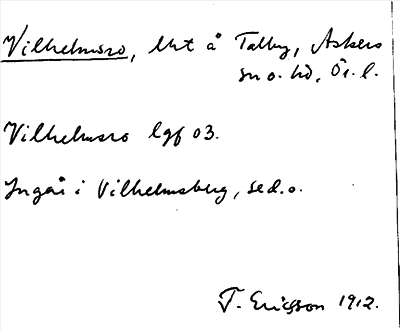 Vilhelmsro, lht å Talby, Askers
sn o. hd, Ör. l.
Vilhelmsro lgf 03.
Ingår i Vilhelmsberg, se d. o.
T. Ericsson 1912.